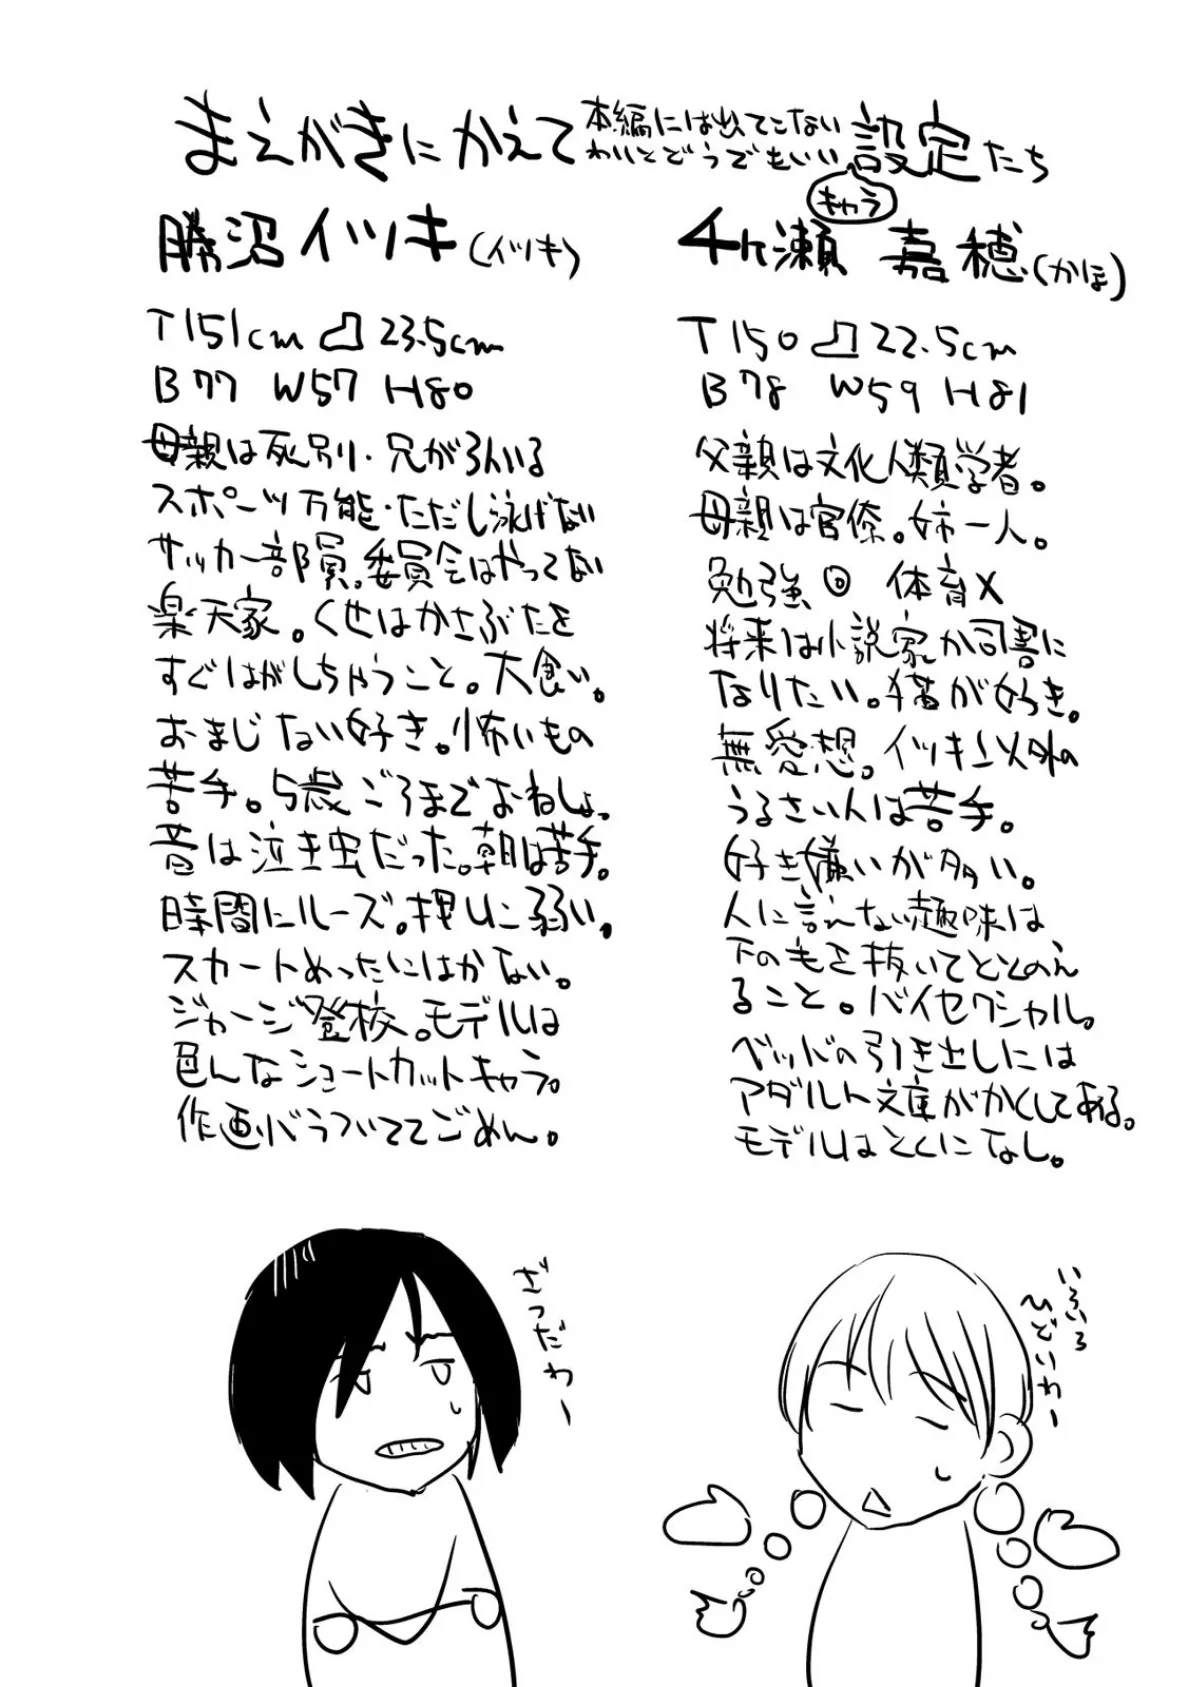 まえがきにかえて 本編には出てこない
わりとどうでもいい
設定たち
キャラ
勝沼イツキ(イツキ)
T151cm 23.5cm
B77 W57 H80
母親は死別・兄が3人いる
スポーツ万能・ただし泳げない
サッカー部員。委員会はやってない
楽天家。くせはかさぶたを
すぐはがしちゃうこと。大食い。
おまじない好き。怖いもの
苦手。5歳ごろまでおねしょ。
昔は泣き虫だった。朝は苦手。
時間にルーズ。押しに弱い。
スカートめったにはかない。
ジャージ登校。モデルは
色んなショートカットキャラ。
作画バラついててごめん。
千ヶ瀬 嘉穂(かほ)
T150 22.5cm
B78 W59 H81
父親は文化人類学者。
母親は官僚。姉一人。
勉強◎ 体育×
将来は小説家か司書に
なりたい。猫が好き。
無愛想。イツキ以外の
うるさい人は苦手。
好き嫌いが多い。
人に言えない趣味は
下の毛を抜いてととのえ
ること。バイセクシャル。
ベッドの引き出しには
アダルト文庫がかくしてある。
モデルはとくになし。
ざつだわー
いろいろ
ひどいわー